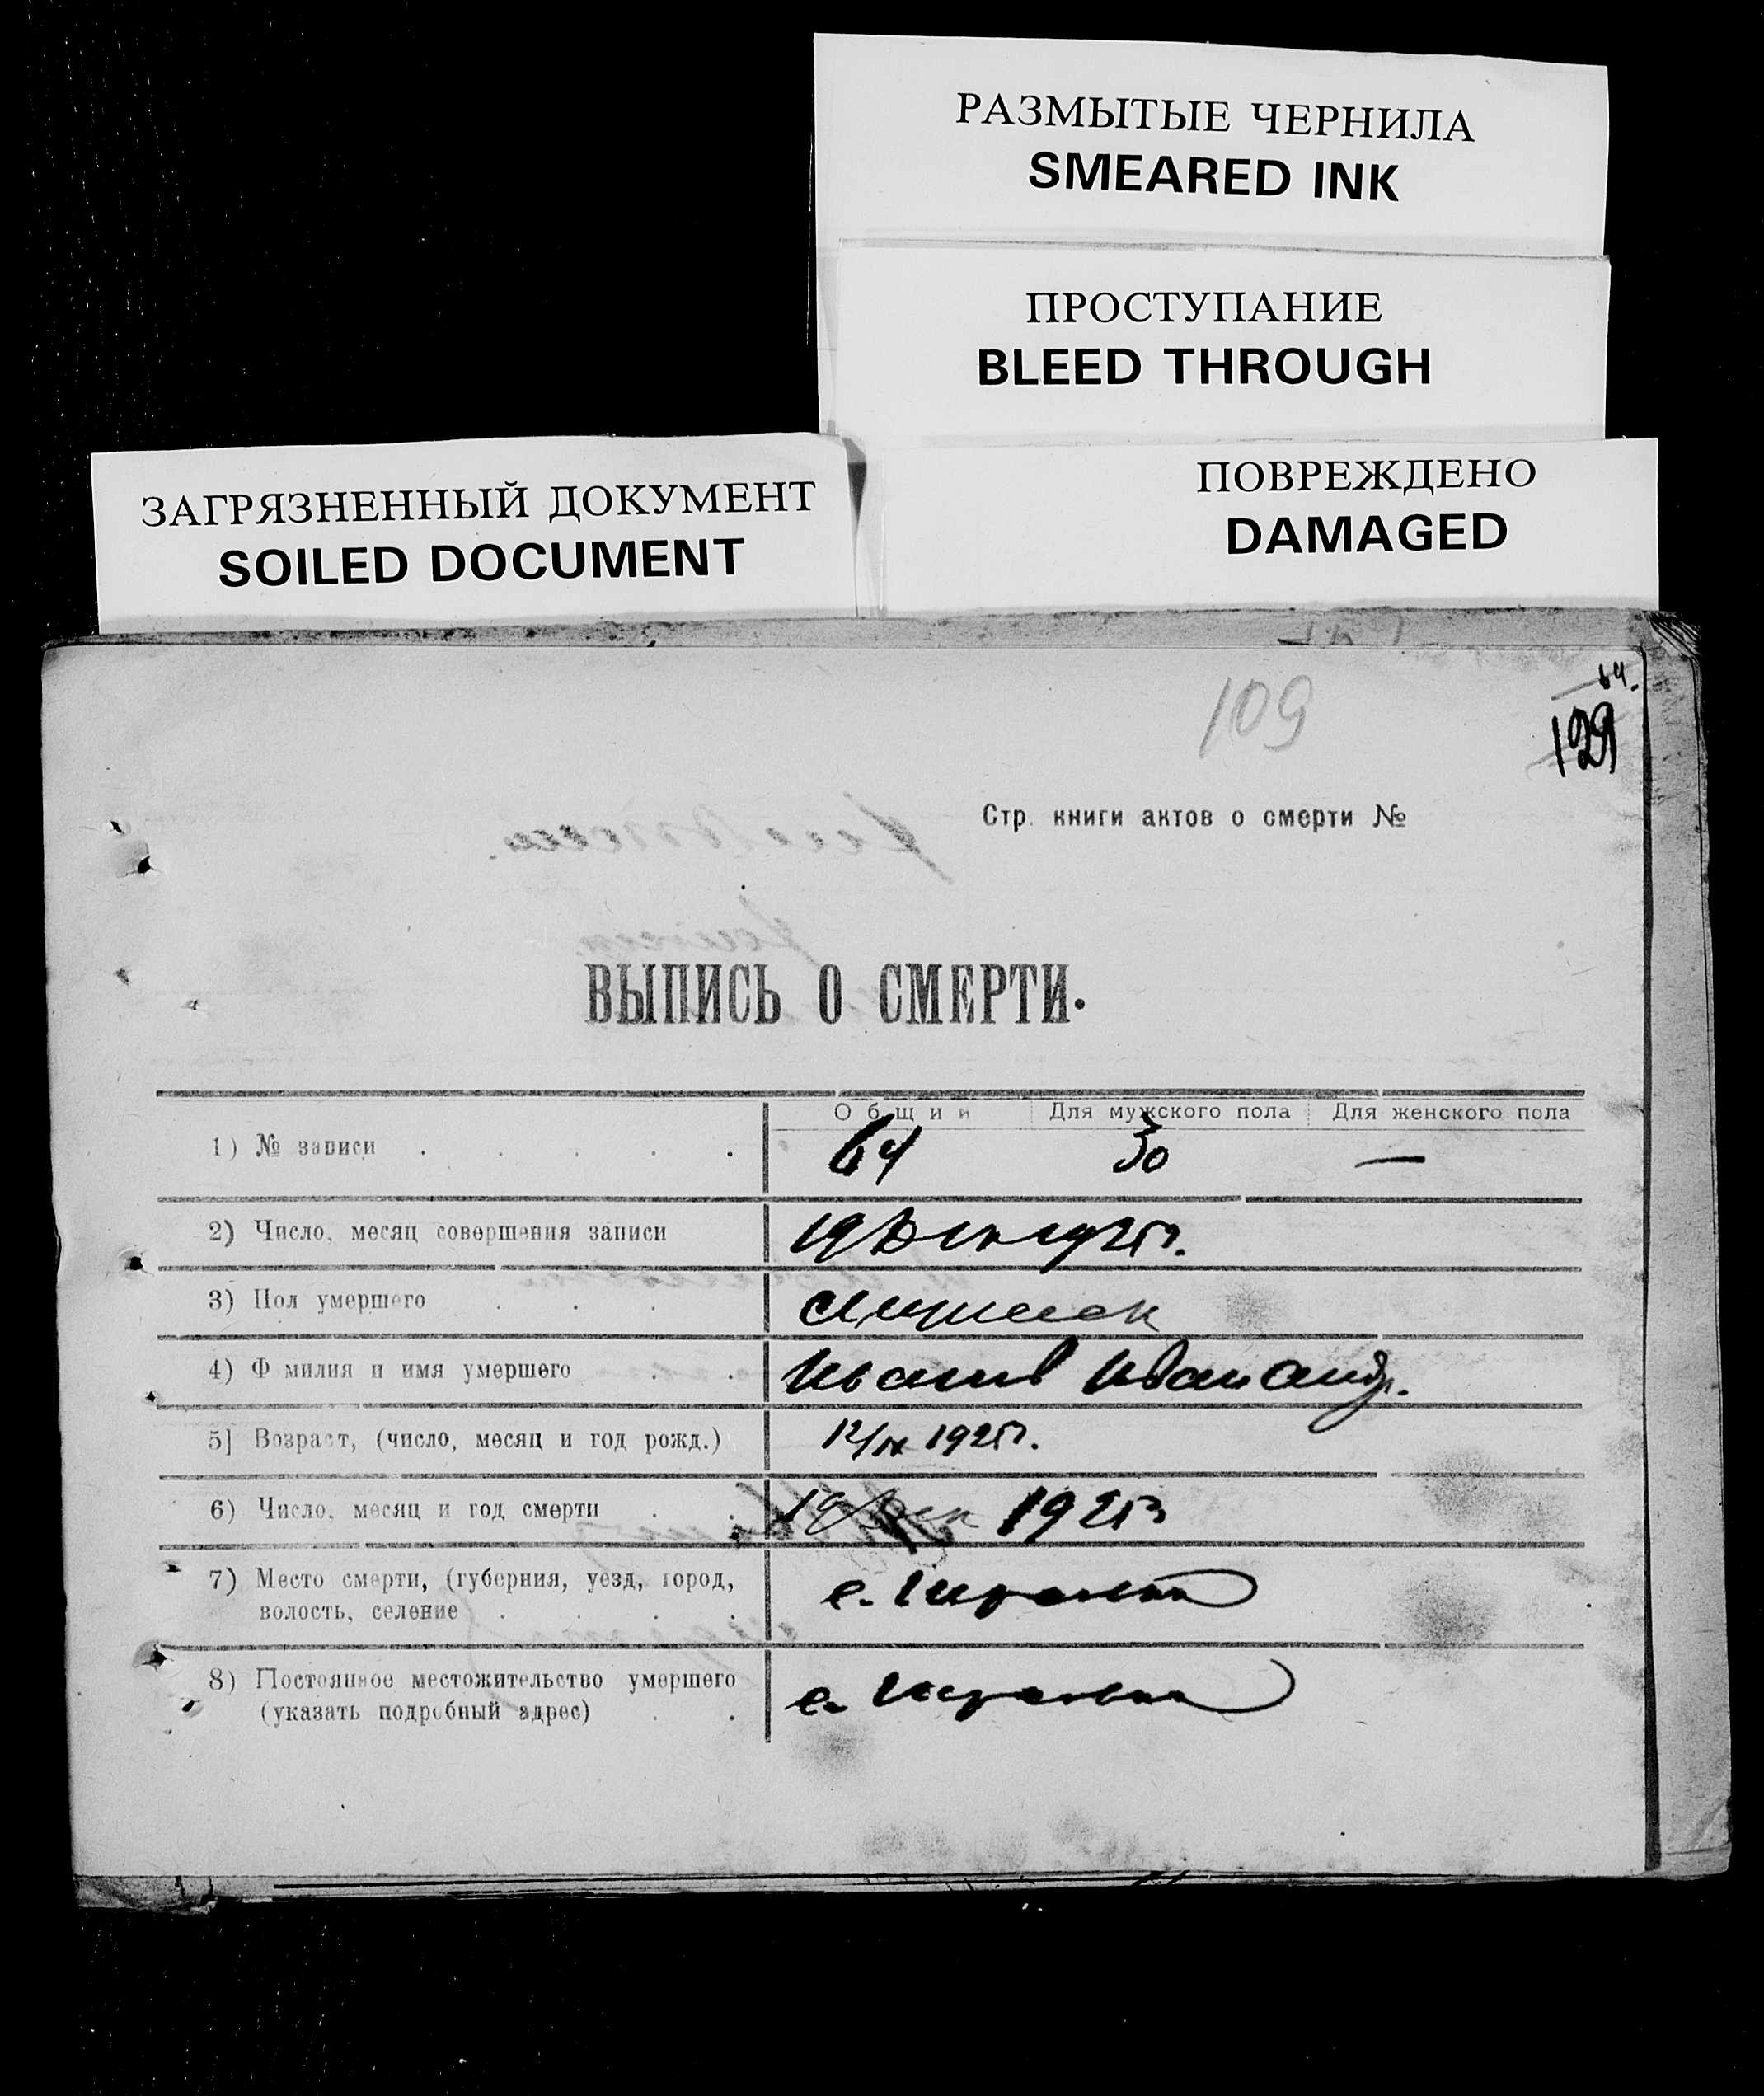 РАЗМЫТЫЕ ЧЕРНИЛА
SMEARED INK
ПРОСТУПАНИЕ
BLEED THROUGH
ЗАГРЯЗНЕННЫЙ ДОКУМЕНТ
SOILED DOCUMENT
ПОВРЕЖДЕНО
DAMAGED
64.
109
129
Стр. книги актов о смерти №
ВЫПИСЬ О СМЕРТИ.
Общий Для мужского пола Для женского пола
1) № записи 64 30 —
2) Число, месяц совершения записи 19
3) Пол умершего
4) Ф милия и имя умершего Иванов Иван Андр.
5] Возраст, (число, месяц и год рожд.) 1925г.
6) Число, месяц и год смерти 1925г
7) Место смерти, (губерния, уезд, город,
волость, селение с.
8) Постоянное местожительство умершего
(указать подробный адрес) с.